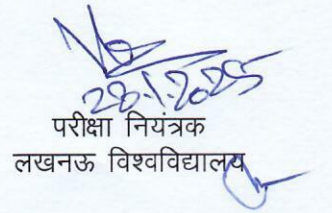 28.1.2025
परीक्षा नियंत्रक
लखनऊ विश्वविद्यालय